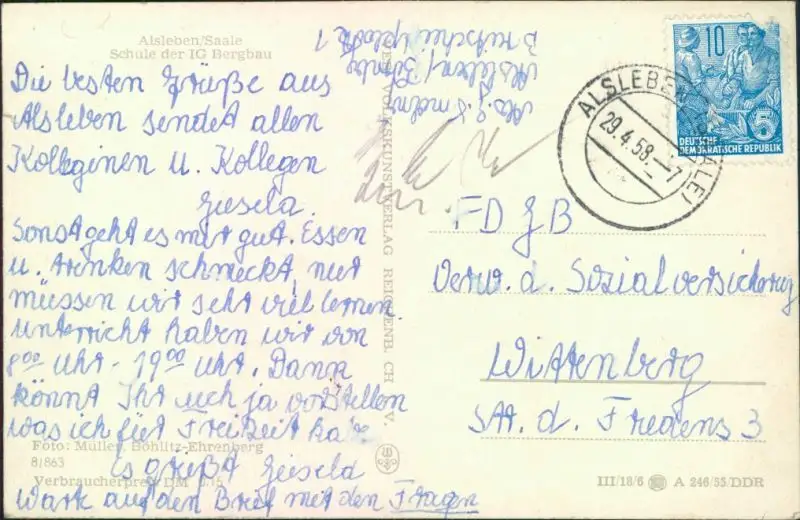 Alsleben/Saale
Schule der IG Bergbau
Die besten Grüße aus
Alsleben sendet allen
Kolleginen u. Kollegen
Gisela
Sonst geht es mir gut. Essen
u. trinken schmeckt, nur
müssen wir sehr viel lernen.
Unterricht haben wir von
8⁰⁰ Uhr - 19⁰⁰ Uhr. Dann
könnt Ihr uch ja vorstellen
was ich für Freizeit habe
Es grüßt Gisela
Wart auf den Brief mit den Fragen
Foto: Müller, Böhlitz-Ehrenberg
8/863
Verbraucherpreis DM 0,15
VOLKSKUNSTVERLAG REICHENB.
Alsleben /
10
5
DEUTSCHE
DEMOKRATISCHE REPUBLIK
ALSLEBEN (SAALE)
29.4.58.-7
FDGB
Verw. d. Sozialversicherung
Wittenberg
Str. d. Friedens 3
III/18/6 A 246/55/DDR